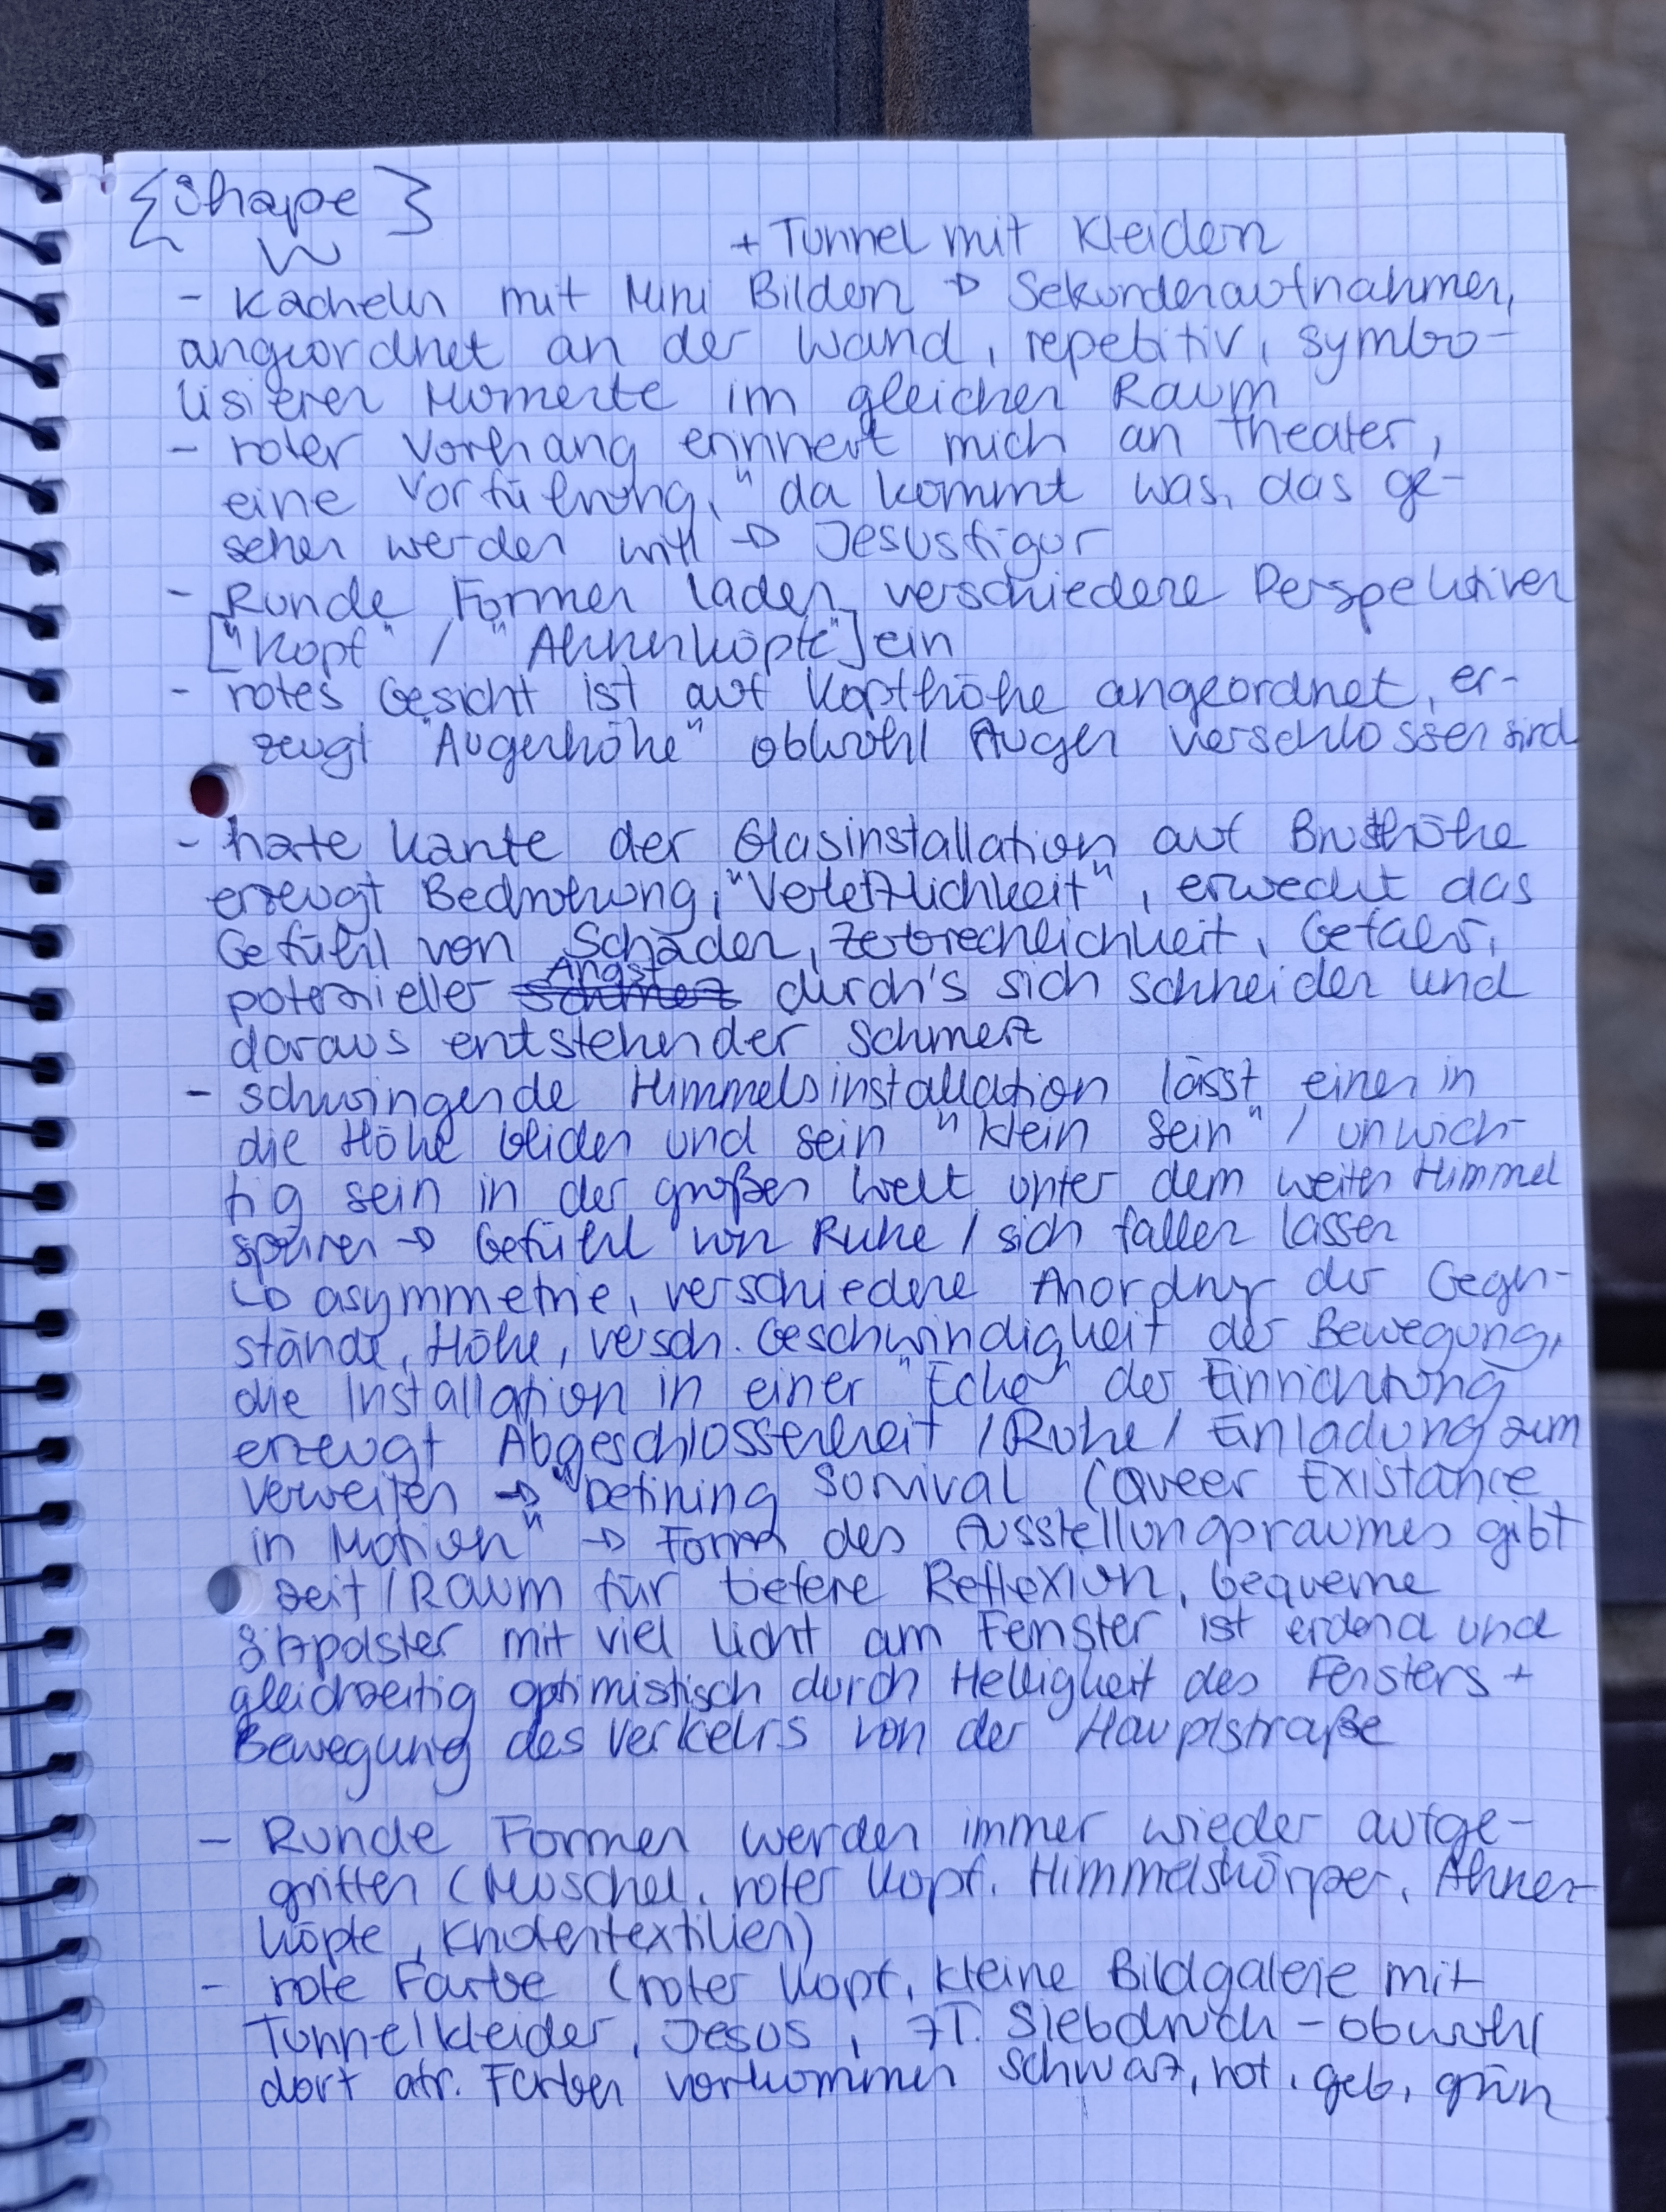 {Shape}
+ Tunnel mit Kleidern
- Kacheln mit Mini Bildern → Sekundenaufnahmen,
angeordnet an der Wand, repetitiv, symbo-
lisieren Momente im gleichen Raum
- roter Vorhang erinnert mich an Theater,
eine Vorführung, "da kommt was, das ge-
sehen werden will → Jesusfigur
- Runde Formen laden verschiedene Perspektiven
["Kopf" / "Ahnenköpfe"] ein
- rotes Gesicht ist auf Kopfhöhe angeordnet, er-
zeugt "Augenhöhe" obwohl Augen verschlossen sind
- harte Kante der Glasinstallation auf Brusthöhe
erzeugt Bedrohung, "Verletzlichkeit", erweckt das
Gefühl von Schäden, Zerbrechlichkeit, Gefahr,
potenzieller Angst durch's sich schneiden und
daraus entstehender Schmerz
- schwingende Himmelsinstallation lässt einen in
die Höhe blicken und sein "klein sein" / unwich-
tig sein in der großen Welt unter dem weiten Himmel
spüren → Gefühl von Ruhe / sich fallen lassen
↳ asymmetrie, verschiedene Anordnung der Gegen-
stände, Höhe, versch. Geschwindigkeit der Bewegung,
die Installation in einer "Ecke" der Einrichtung
erzeugt Abgeschlossenheit / Ruhe / Einladung zum
Verweilen → "Defining Survival (Queer Existance
in Motion" → Form des Ausstellungsraumes gibt
Zeit / Raum für tiefere Reflexion, bequeme
Sitzpolster mit viel Licht am Fenster ist erdend und
gleichzeitig optimistisch durch Helligkeit des Fensters +
Bewegung des Verkehrs von der Hauptstraße
- Runde Formen werden immer wieder aufge-
griffen (Muschel, roter Kopf, Himmelskörper, Ahnen-
köpfe, Knotentextilien)
- rote Farbe (roter Kopf, kleine Bildgalerie mit
Tunnelkleider, Jesus, zT. Siebdruck - obwohl
dort Farben vorkommen schwarz, rot, gelb, grün